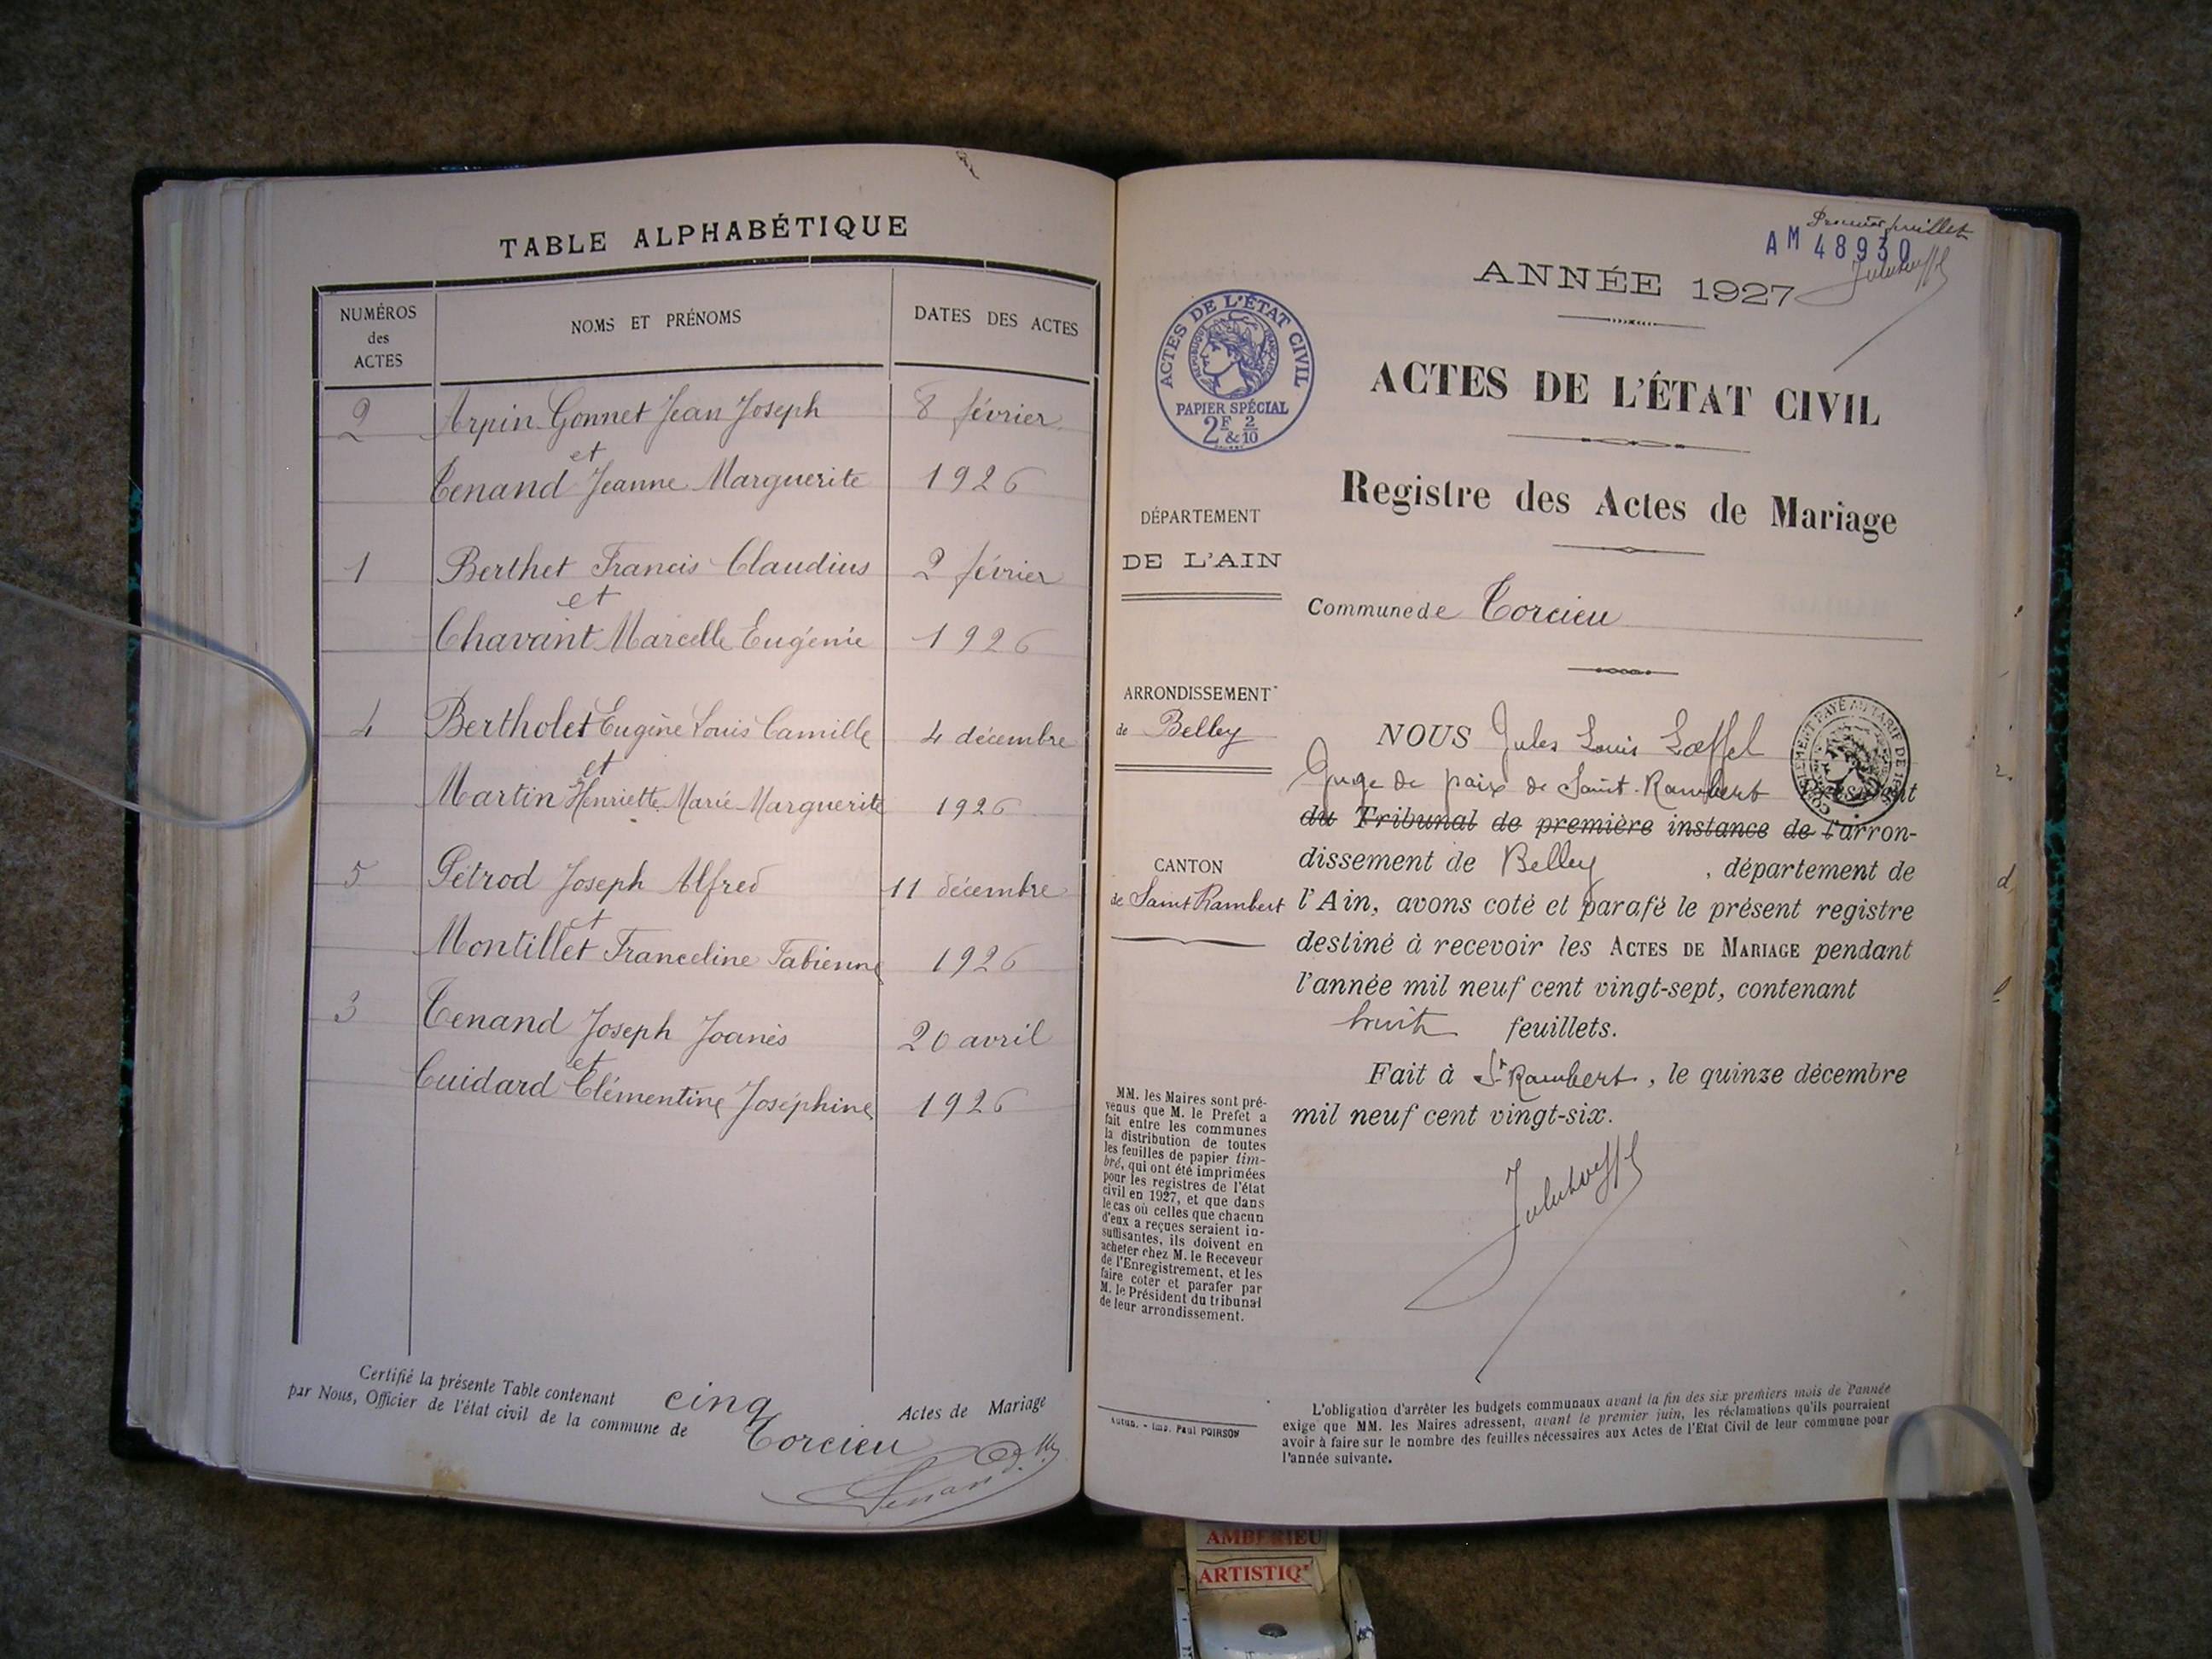 TABLE ALPHABÉTIQUE
NUMÉROS des ACTES
NOMS ET PRÉNOMS
DATES DES ACTES
2 Arpin Gonnet Jean Joseph 8 février
et
Tenand Jeanne Marguerite 1926
1 Berthet Francis Claudius 2 février
et
Chavant Marcelle Eugénie 1926
4 Bertholet Eugène Louis Camille 4 décembre
et
Martin Henriette Marie Marguerite 1926
5 Pétrod Joseph Alfred 11 décembre
et
Montillet Franceline Fabienne 1926
3 Tenand Joseph Joanès 20 avril
et
Cuidard Clémentine Joséphine 1926
Certifié la présente Table contenant cinq Actes de Mariage
par Nous, Officier de l'état civil de la commune de Torcieu
Tenand
Premier feuillet
AM 48930
ANNÉE 1927
ACTES DE L'ÉTAT CIVIL
RÉPUBLIQUE FRANÇAISE
PAPIER SPÉCIAL
2F & 2/10
ACTES DE L'ÉTAT CIVIL
Registre des Actes de Mariage
DÉPARTEMENT
DE L'AIN
Commune de Torcieu
ARRONDISSEMENT
de Belley
CANTON
de Saint Rambert
NOUS Jules Louis Lœffel
Juge de paix de Saint-Rambert Président
du Tribunal de première instance de l'arron-
dissement de Belley, département de
l'Ain, avons coté et parafé le présent registre
destiné à recevoir les ACTES DE MARIAGE pendant
l'année mil neuf cent vingt-sept, contenant
huit feuillets.
Fait à St Rambert, le quinze décembre
mil neuf cent vingt-six.
MM. les Maires sont pré-
venus que M. le Préfet a
fait entre les communes
la distribution de toutes
les feuilles de papier tim-
bré, qui ont été imprimées
pour les registres de l'état
civil en 1927, et que dans
le cas où celles que chacun
d'eux a reçues seraient in-
suffisantes, ils doivent en
acheter chez M. le Receveur
de l'Enregistrement, et les
faire coter et parafer par
M. le Président du tribunal
de leur arrondissement.
Autun. - Imp. Paul POIRSON
L'obligation d'arrêter les budgets communaux avant la fin des six premiers mois de l'année
exige que MM. les Maires adressent, avant le premier juin, les réclamations qu'ils pourraient
avoir à faire sur le nombre des feuilles nécessaires aux Actes de l'Etat Civil de leur commune pour
l'année suivante.
AMBERIEU
ARTISTIQ